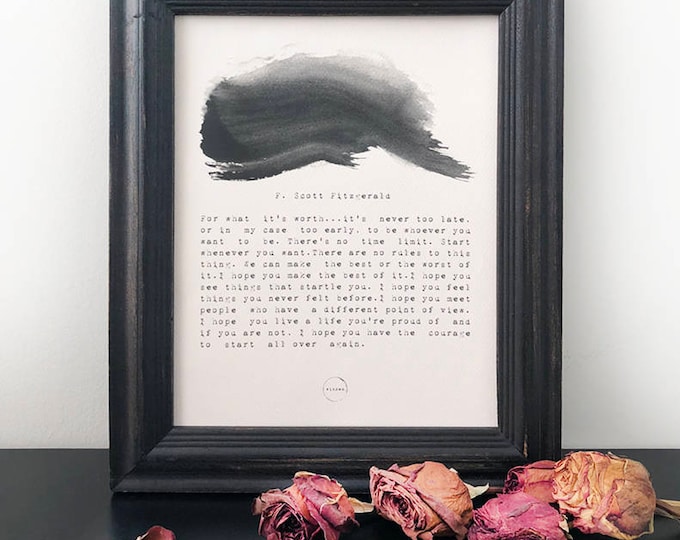 F. Scott Fitzgerald
For what it's worth...it's never too late,
or in my case too early, to be whoever you
want to be. There's no time limit. Start
whenever you want.There are no rules to this
thing. We can make the best or the worst of
it.I hope you make the best of it.I hope you
see things that startle you. I hope you feel
things you never felt before.I hope you meet
people who have a different point of view.
I hope you live a life you're proud of and
if you are not. I hope you have the courage
to start all over again.